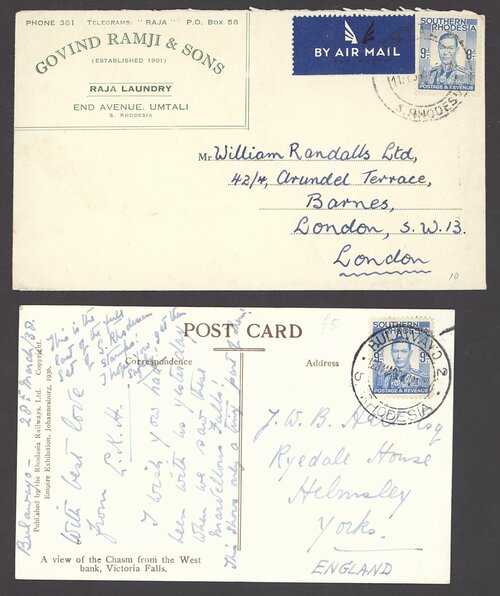 PHONE 381 TELEGRAMS: "RAJA" P.O. BOX 58
GOVIND RAMJI & SONS
(ESTABLISHED 1901)
RAJA LAUNDRY
END AVENUE, UMTALI
S. RHODESIA
BY AIR MAIL
SOUTHERN
RHODESIA
9D 9D
POSTAGE & REVENUE
S. RHODESIA
Mr. William Randalls Ltd,
42/4, Arundel Terrace,
Barnes,
London, S.W.13.
London
10
£5
POST CARD
Correspondence
Address
SOUTHERN
9D 9D
POSTAGE & REVENUE
BULAWAYO 2
S. RHODESIA
Bulawayo - 28th March/38.
Published by the Rhodesia Railways, Ltd. Copyright.
Empire Exhibition, Johannesburg, 1936.
This is the
last of the full
set of S. Rhodesian
stamps.
I hope you get them
With best love
from E.K.H.
I wish you had
been with us yesterday
when we saw these
marvellous Falls!
This shows only a tiny part of them.
J. W. B. Esq
Ryedale House
Helmsley
Yorks.
ENGLAND
A view of the Chasm from the West
bank, Victoria Falls.